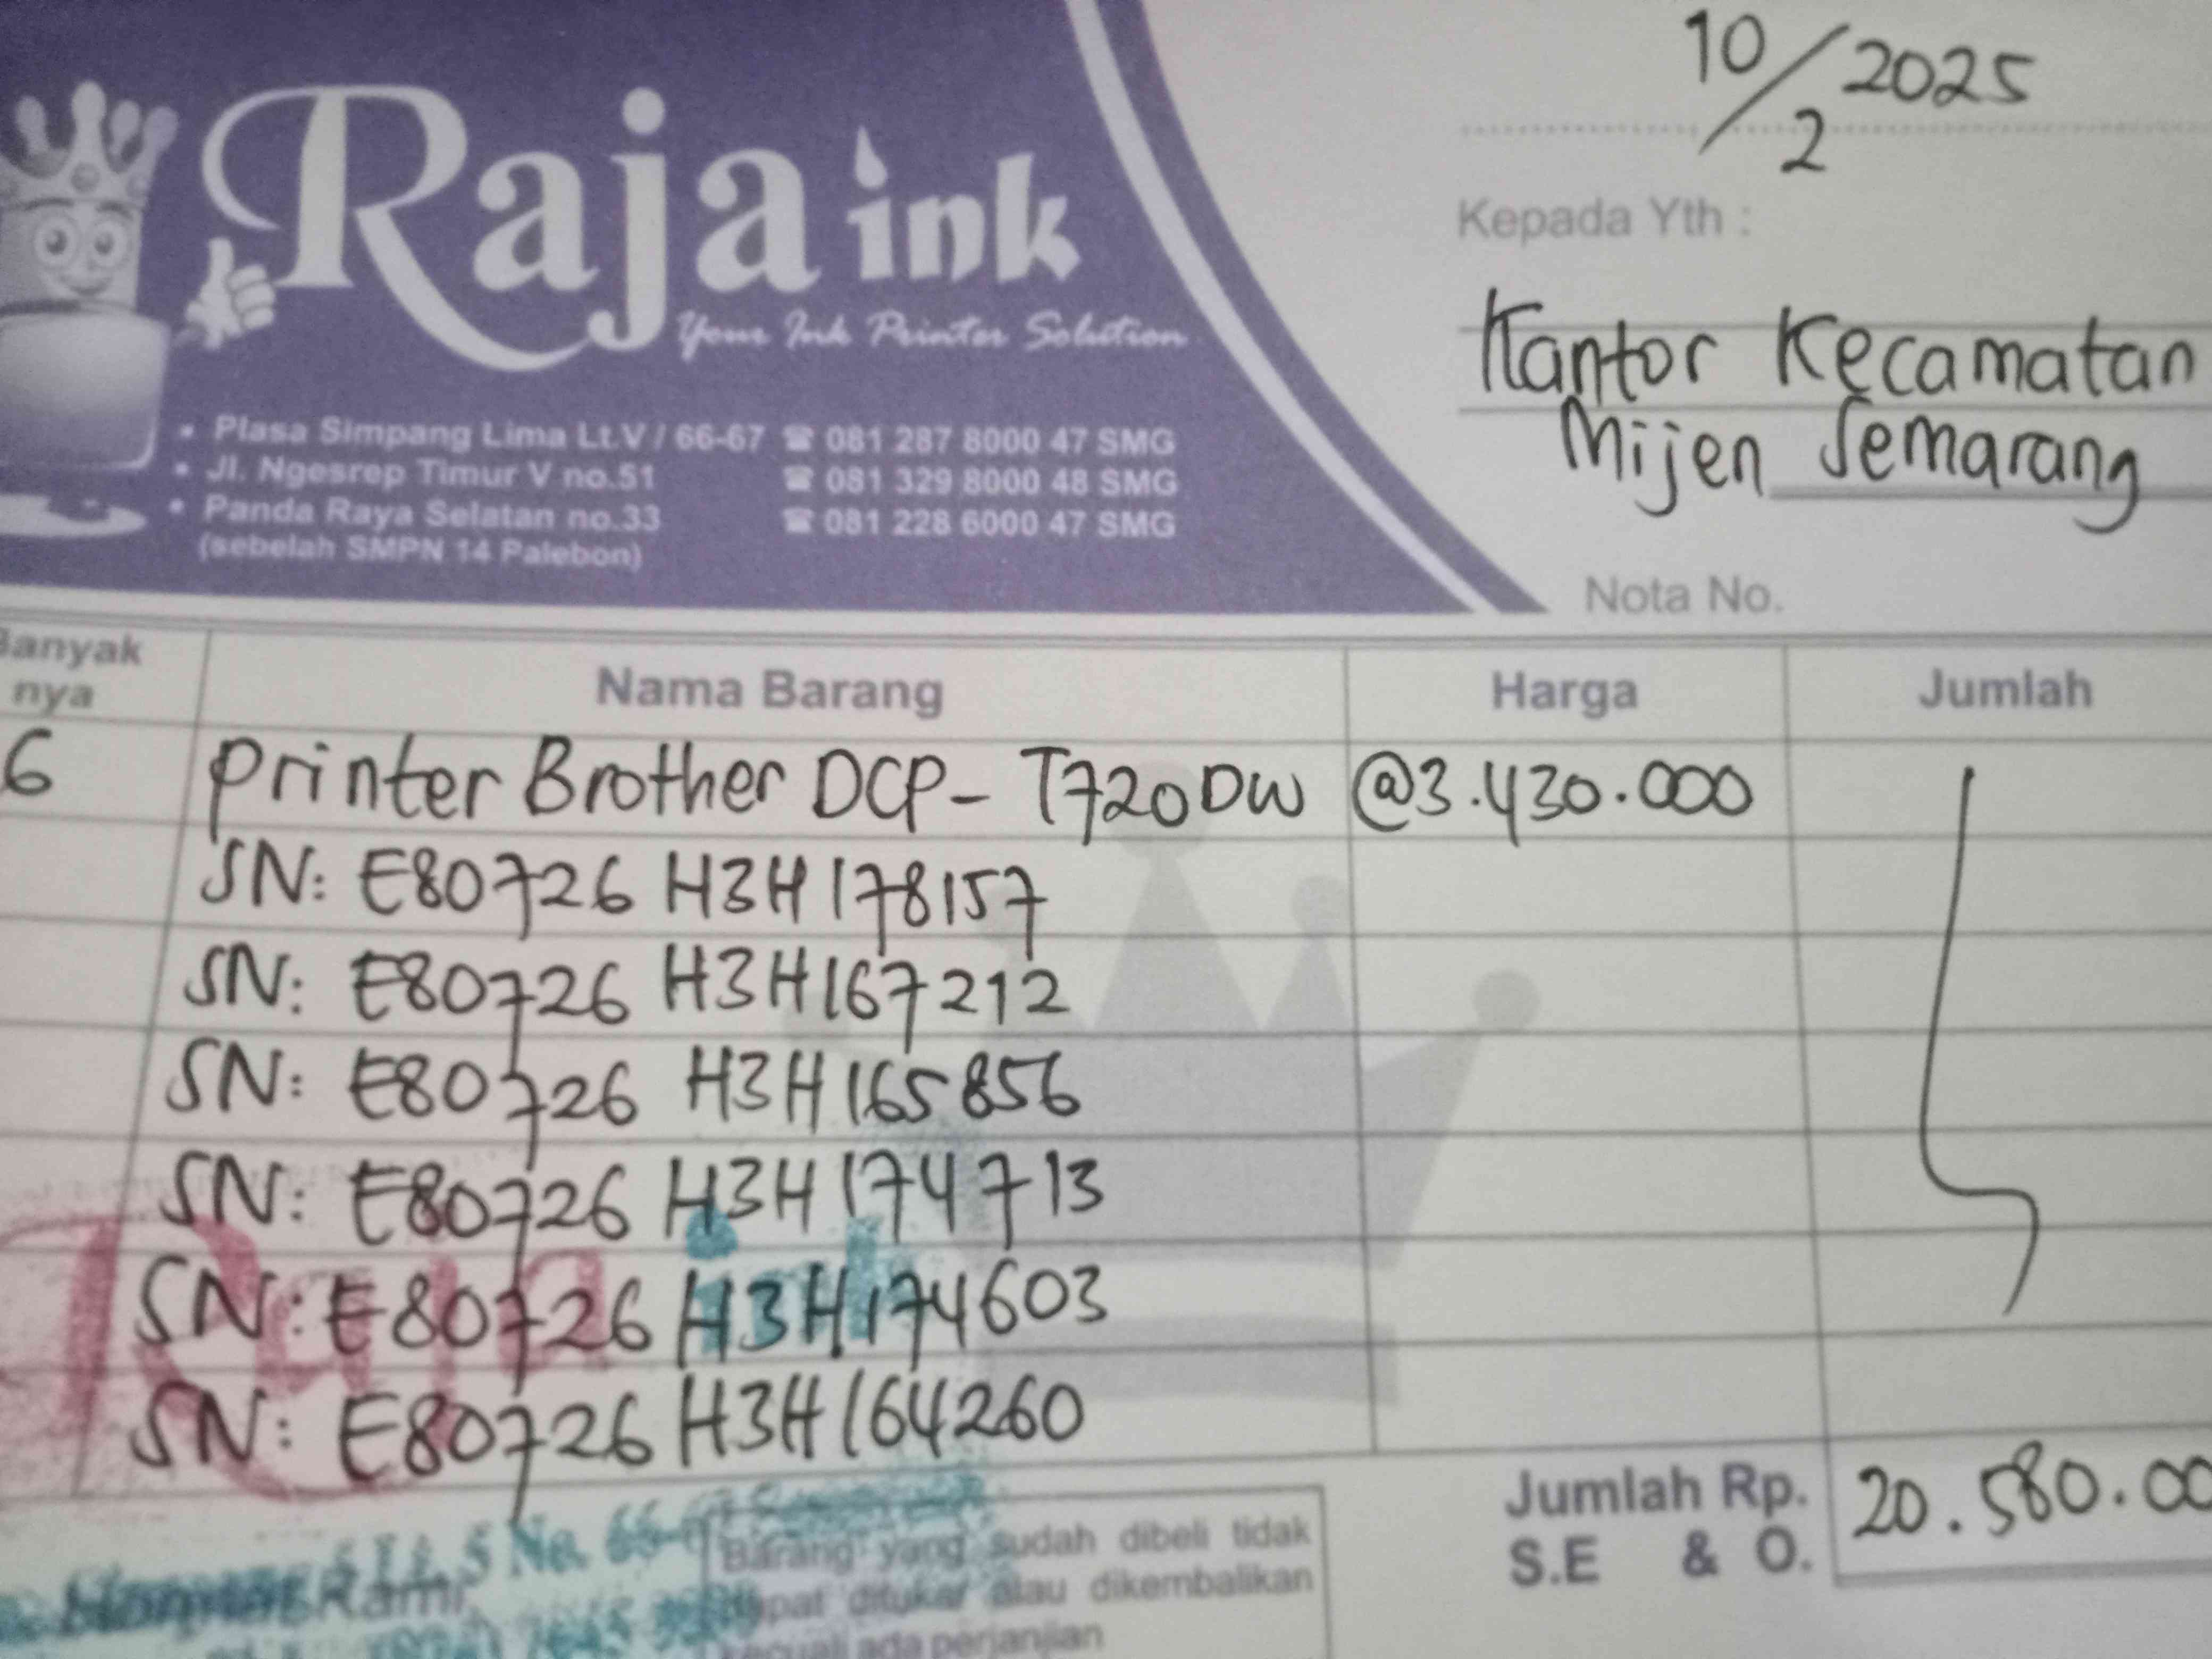 10/2 2025
Raja ink
Your Ink Printer Solution
Kepada Yth :
Kantor Kecamatan
Mijen Semarang
• Plasa Simpang Lima Lt.V / 66-67 ☎ 081 287 8000 47 SMG
• Jl. Ngesrep Timur V no.51 ☎ 081 329 8000 48 SMG
• Panda Raya Selatan no.33 ☎ 081 228 6000 47 SMG
(sebelah SMPN 14 Palebon)
Nota No.
Banyak nya Nama Barang Harga Jumlah
6 Printer Brother DCP-T720DW @3.430.000
SN: E80726 H3H178157
SN: E80726 H3H167212
SN: E80726 H3H165856
SN: E80726 H3H174713
SN: E80726 H3H174603
SN: E80726 H3H164260
Raja ink
Jumlah Rp. 20.580.00
S.E & O.
Lt. 5 No. 66-6
Hormat Kami,
Barang yang sudah dibeli tidak
dapat ditukar atau dikembalikan
kecuali ada perjanjian